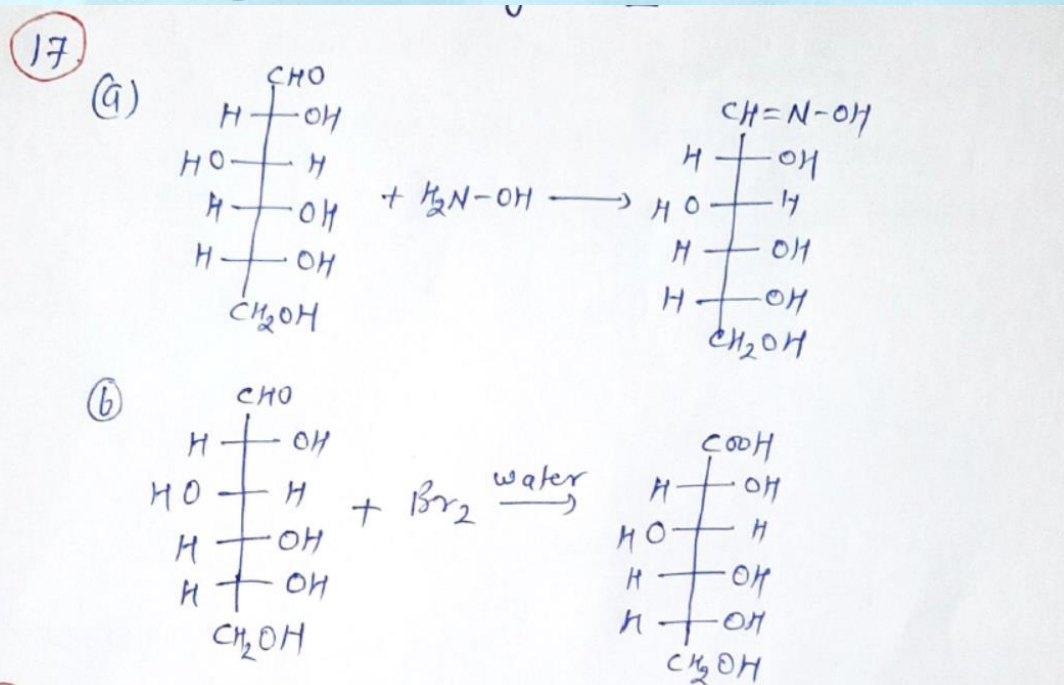 17.
(a)
CHO
H OH
HO H
H OH
H OH
CH2OH
+ H2N-OH →
CH=N-OH
H OH
HO H
H OH
H OH
CH2OH
(b)
CHO
H OH
HO H
H OH
H OH
CH2OH
+ Br2 water →
COOH
H OH
HO H
H OH
H OH
CH2OH